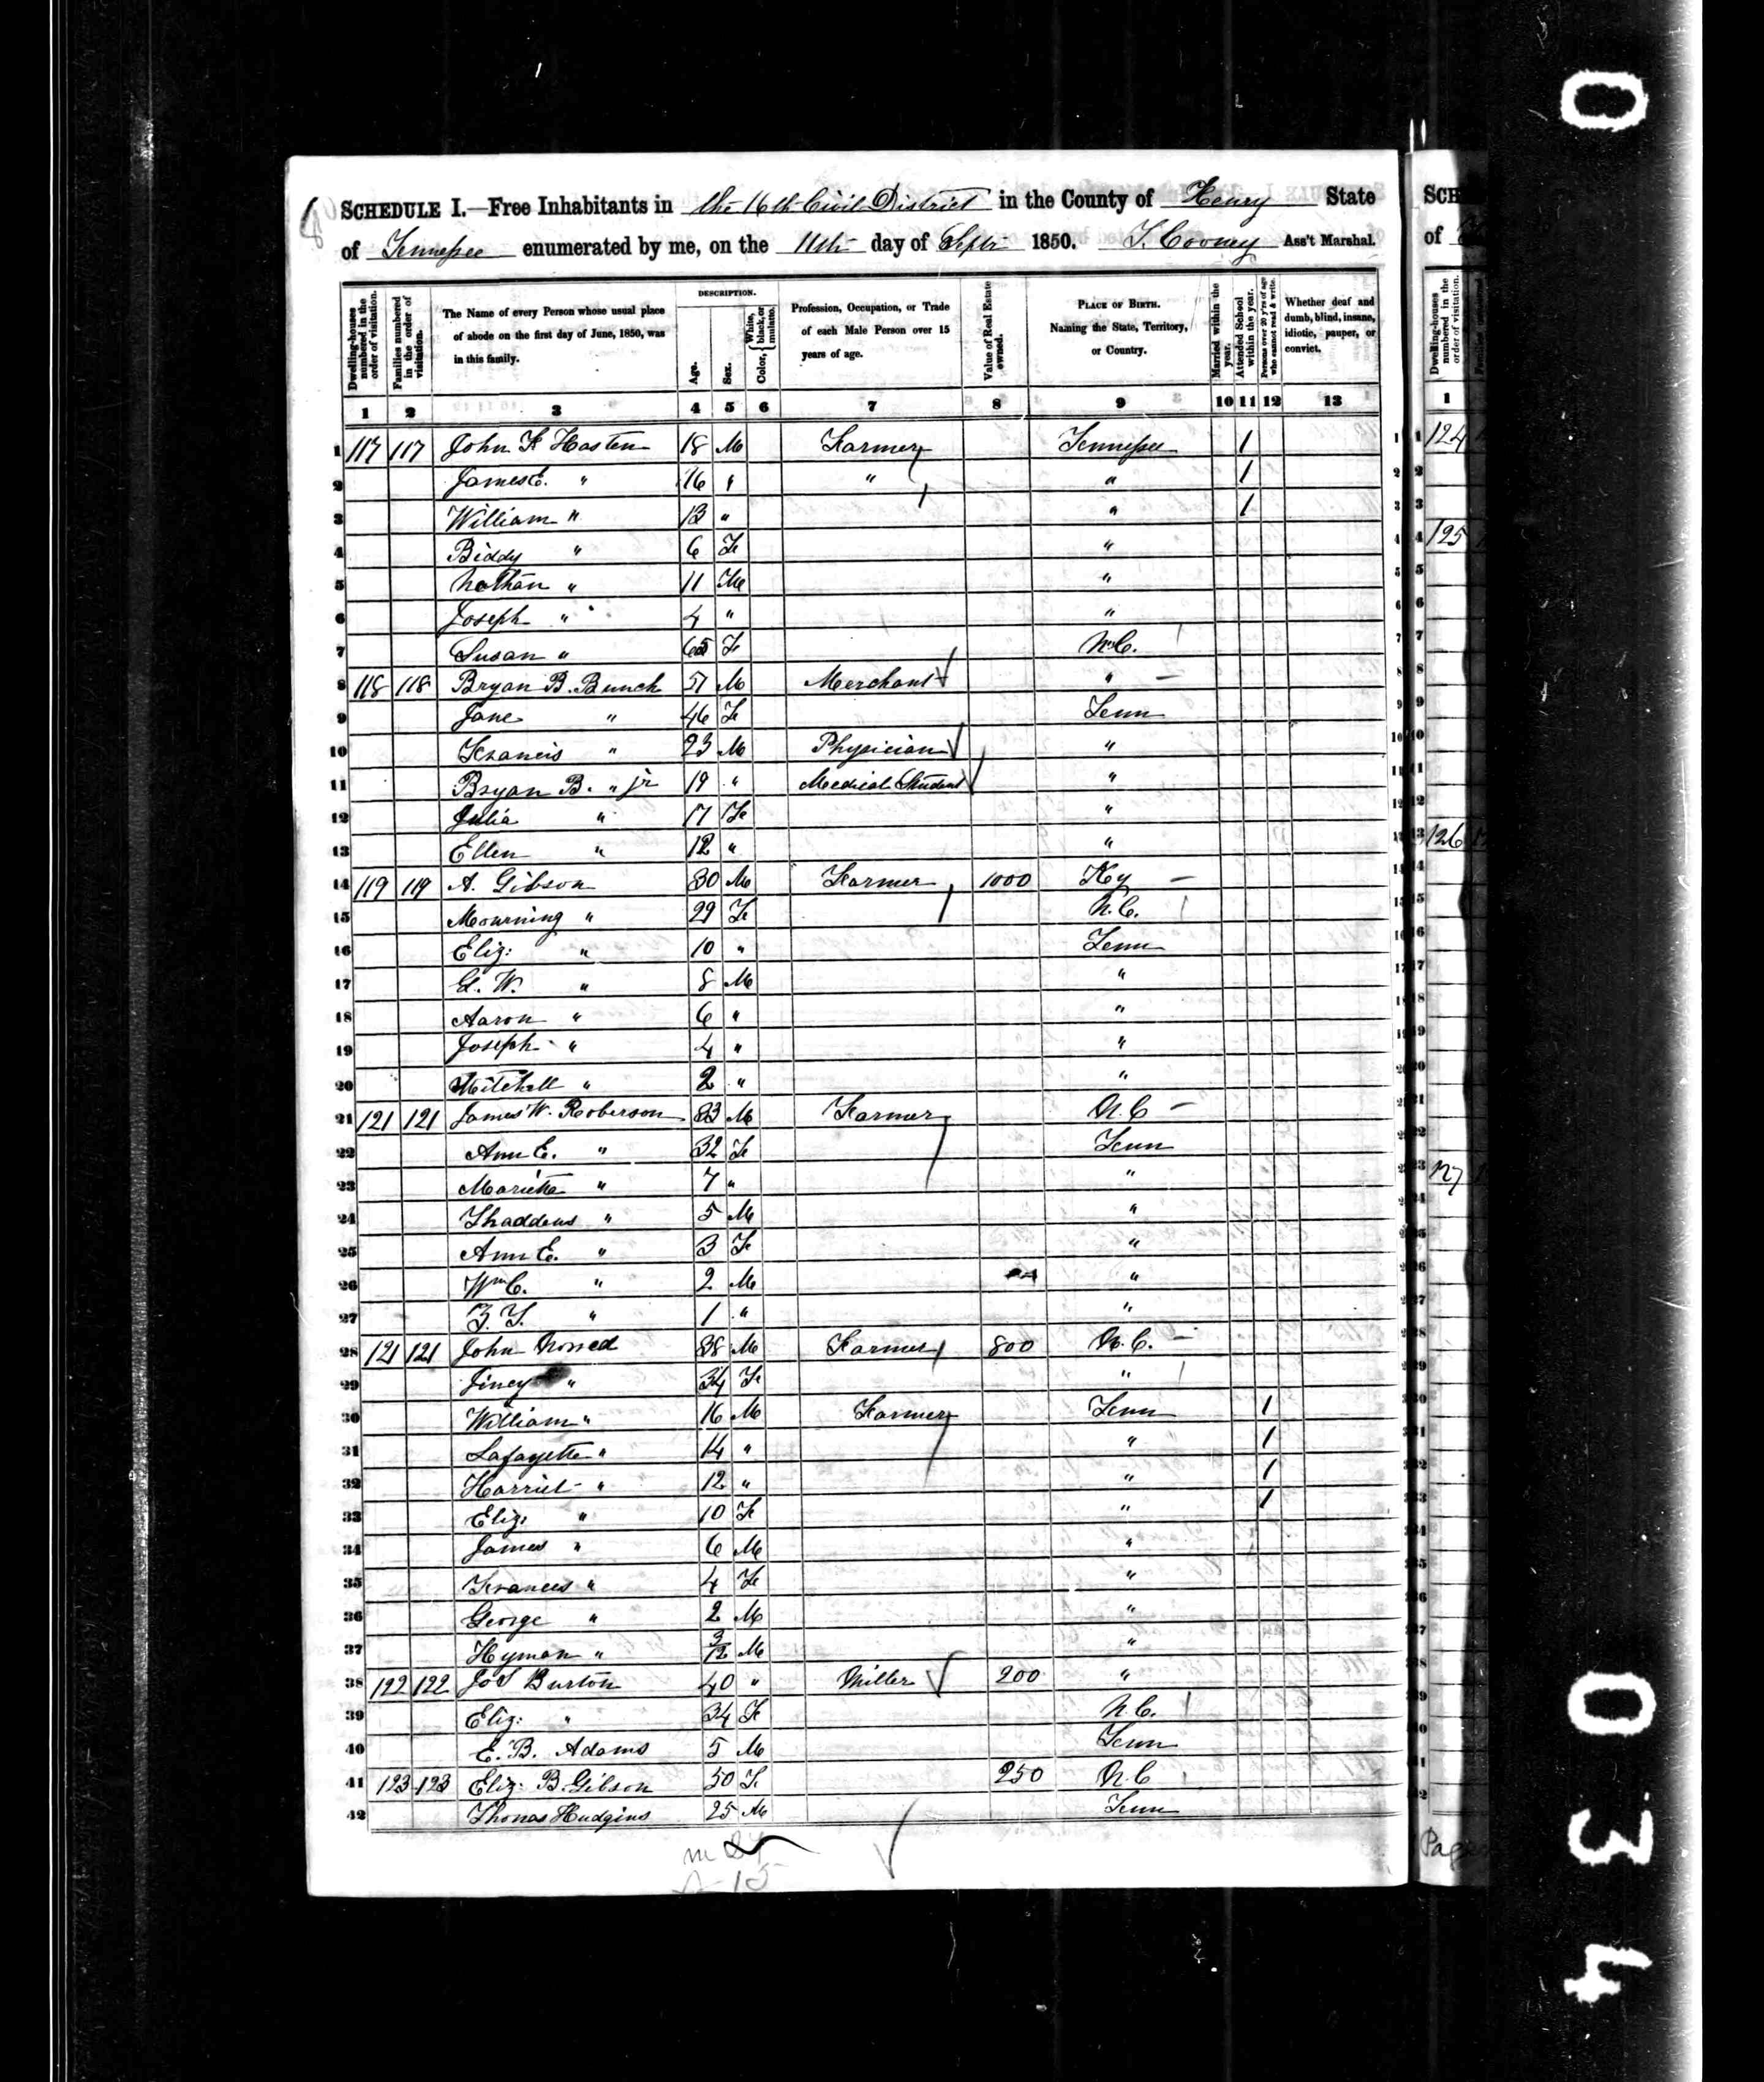 SCHEDULE I.—Free Inhabitants in the 16th Civil District in the County of Henry State
of Tennessee enumerated by me, on the 11th day of Septr 1850. T. Cooney Ass't Marshal.
Dwelling-houses numbered in the order of visitation.
Families numbered in the order of visitation.
The Name of every Person whose usual place of abode on the first day of June, 1850, was in this family.
DESCRIPTION.
Age.
Sex.
Color, { White, black, or mulatto.
Profession, Occupation, or Trade of each Male Person over 15 years of age.
Value of Real Estate owned.
PLACE OF BIRTH. Naming the State, Territory, or Country.
Married within the year.
Attended School within the year.
Persons over 20 y'rs of age who cannot read & write.
Whether deaf and dumb, blind, insane, idiotic, pauper, or convict.
1 2 3 4 5 6 7 8 9 10 11 12 13
1 117 117 John K Hasten 18 M Farmer Tennessee 1
2 James E. " 16 " " " 1
3 William " 13 " " 1
4 Biddy " 6 Fe "
5 Nathan " 11 M "
6 Joseph " 4 " "
7 Susan " 65 Fe N.C.
8 118 118 Bryan B. Bunch 51 M Merchant "
9 Jane " 46 Fe Tenn
10 Francis " 23 M Physician "
11 Bryan B. " jr 19 " Medical Student "
12 Julia " 17 Fe "
13 Ellen " 12 " "
14 119 119 A. Gibson 30 M Farmer 1000 Ky
15 Mourning " 29 Fe N.C.
16 Eliz: " 10 " Tenn
17 G. W. " 8 M "
18 Aaron " 6 " "
19 Joseph " 4 " "
20 Mitchell " 2 " "
21 121 121 James W. Roberson 33 M Farmer N.C
22 Ann E. " 32 Fe Tenn
23 Marietta " 7 " "
24 Thaddeus " 5 M "
25 Ann E. " 3 Fe "
26 Wm C. " 2 M "
27 Z. T. " 1 " "
28 121 121 John 38 M Farmer 800 N.C.
29 Jincy " 34 Fe "
30 William " 16 M Farmer Tenn 1
31 Lafayette " 14 " " 1
32 Harriet " 12 " " 1
33 Eliz: " 10 Fe " 1
34 James " 6 M "
35 Frances " 4 Fe "
36 George " 2 M "
37 Hyman " 3/12 M "
38 122 122 Jo S Burton 40 " Miller 200 "
39 Eliz: " 34 Fe N.C.
40 E. B. Adams 5 M Tenn
41 123 123 Eliz: B. Gibson 50 Fe 250 N.C
42 Thomas Hudgins 25 M Tenn
SCH
of
Dwelling-houses numbered in the order of visitation.
1
124
125
126
127
Pag
0
034